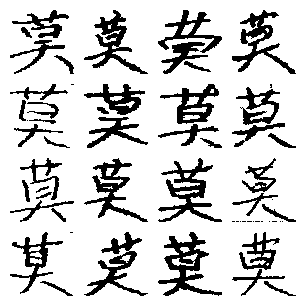 莫莫莫莫
莫莫莫莫
莫莫莫莫
莫莫莫莫